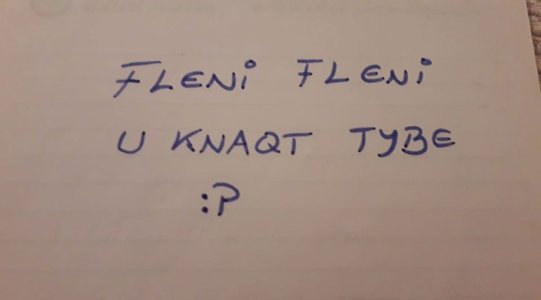 FLENI FLENI
U KNAQT TYBE
:P